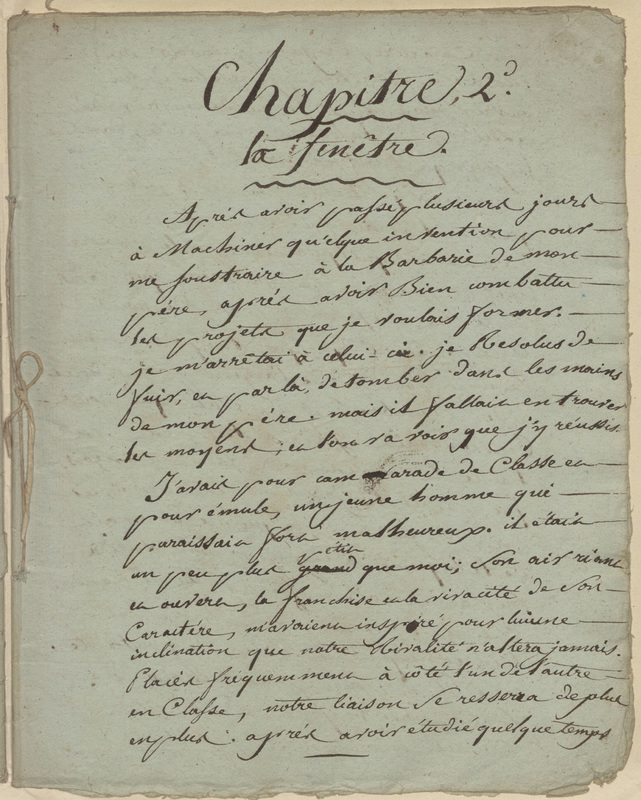 Chapitre, 2.d
la fenêtre.
Après avoir passé plusieurs jours
à Machiner quelque invention pour
me soustraire à la Barbarie de mon
père, après avoir Bien combattu
les projets que je voulais former.
je m'arrêtai à celui-ci. je Resolus de
fuir, et par là, de tomber dans les mains
de mon père. mais il fallait en trouver
les moyens; et l'on va voir que j'y réussis.
J'avais pour camarade de Classe et
pour émule, un jeune homme qui
paraissait fort malheureux. il était
petit
un peu plus grand que moi; son air riant
et ouvert, la franchise et la vivacité de son
Caractére, m'avoient inspiré pour lui une
inclination que notre Rivalité n'altera jamais.
Placés fréquemment à côté l'un de l'autre
en Classe, notre liaison se resserra de plus
en plus. après avoir étudié quelque temps